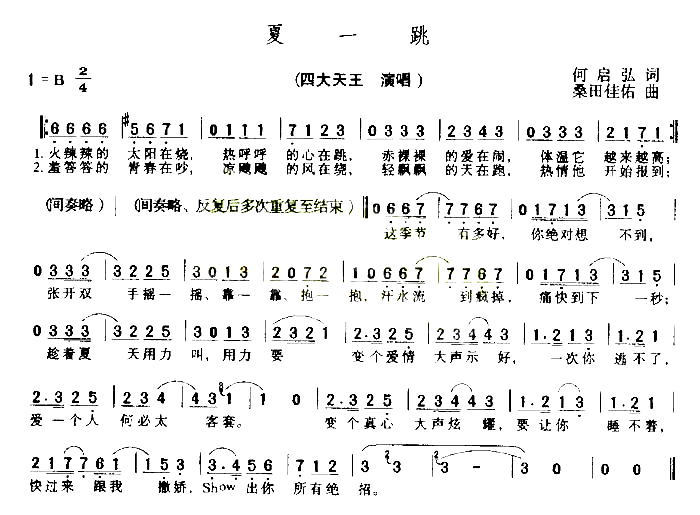 夏 一 跳
1=B 2/4 (四大天王 演唱) 何启弘 词
桑田佳佑 曲
6666 #5671 0111 7123 0333 2123 0333 2171
1.火辣辣的 太阳在烧, 热呼呼 的心在跳, 赤裸裸 的爱在闹, 体温它 越来越高;
2.羞答答的 青春在吵, 凉飕飕 的风在绕, 轻飘飘 的天在跑, 热情他 开始报到;
(间奏略) (间奏略、反复后多次重复至结束) 0667 7767 01713 315
这季节 有多好, 你绝对想 不到,
0333 3225 3013 2072 10667 7767 01713 315
张开双 手摇一 摇、靠一 靠、抱一 抱,汗水流 到疯掉, 痛快到下 一秒;
0333 3225 3013 2321 2.325 23443 1.213 1.213
趁着夏 天用力 叫,用力 要 变个爱情 大声示 好, 一次你 逃不了,
2.325 2344 431 1 0 2.325 23443 1.213 1.213
爱一个人 何必太 客套。 变个真心 大声炫 耀,要让你 睡不着,
217761 153 3.456 712 3 3 3 - 3 0
快过来 跟我 撒娇, Show出你 所有绝 招。